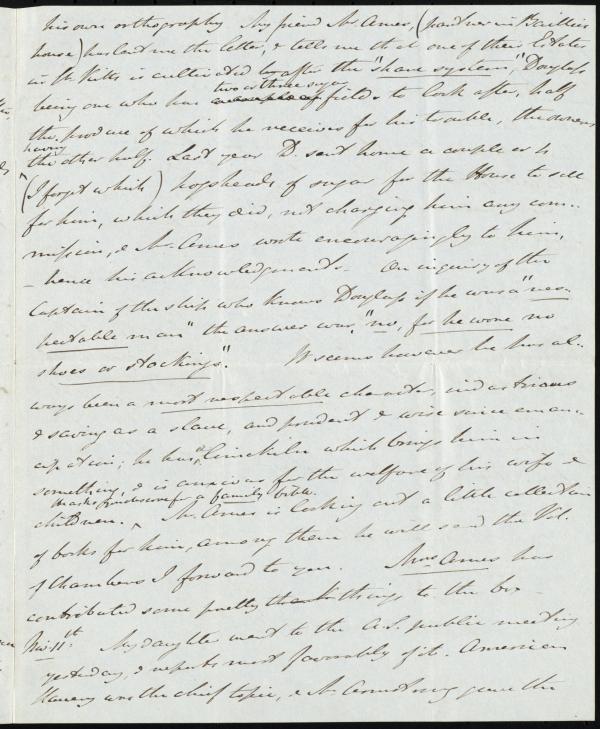 his own orthography My friend Mr. Ames, (partner in Baillies
house) has lent me the letter, & tells me that one of their Estates
in St. Kitts is cultivated after the "share system", Douglass
being one who has two or three sugar fields to look after, half
the produce of which he receives for his trouble, the owners
having the other half. Last year D. sent home a couple or so
(I forget which) hogsheads of sugar for the House to sell
for him, which they did, not charging him any com-
mission, & Mr. Ames wrote encouragingly to him,
- hence his acknowledgments. On inquiry of the
Captain of the ship who knows Douglass if he was a "res-
pectable man" the answer was, "no, for he wore no
shoes or stockings". It seems however he has al-
ways been a most respectable character, industrious
& saving as a slave, and prudent & wise since eman-
cipation; he has a limekiln which brings him in
something, & is anxious for the welfare of his wife &
children. Mr. Ames is looking out a little collection
of books for him, among them he will send the Vol.
of Chambers I forward to you. Mrs Ames has
contributed some pretty things to the box
Nov. 11th. My daughter went to the A.S. public meeting
yesterday, & reports most favorably of it. American
Slavery was the chief topic, & Mr. Armstrong gave the